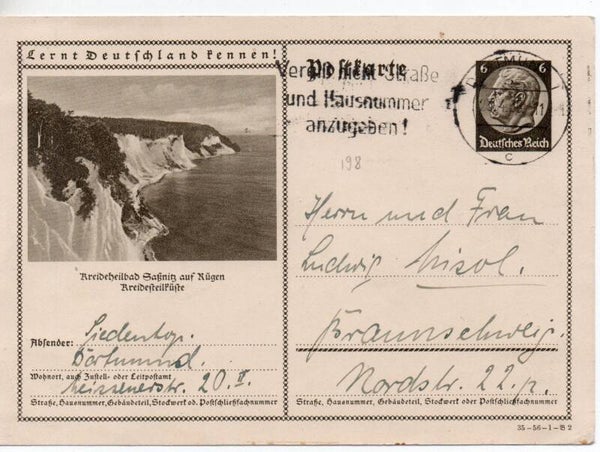 Lernt Deutschland kennen!
Postkarte
Vergiß nicht Straße
und Hausnummer
anzugeben!
6 6
Deutsches Reich
DORTMUND
c
198
Kreideheilbad Saßnitz auf Rügen
Kreidesteilküste
Herrn und Frau
Ludwig
Braunschweig.
Nordstr. 22 p.
Absender: Siedentop.
Dortmund.
Wohnort, auch Zustell- oder Leitpostamt
Meissenerstr. 20. II.
Straße, Hausnummer, Gebäudeteil, Stockwerk od. Postschließfachnummer
Straße, Hausnummer, Gebäudeteil, Stockwerk oder Postschließfachnummer
35-56-1-B 2